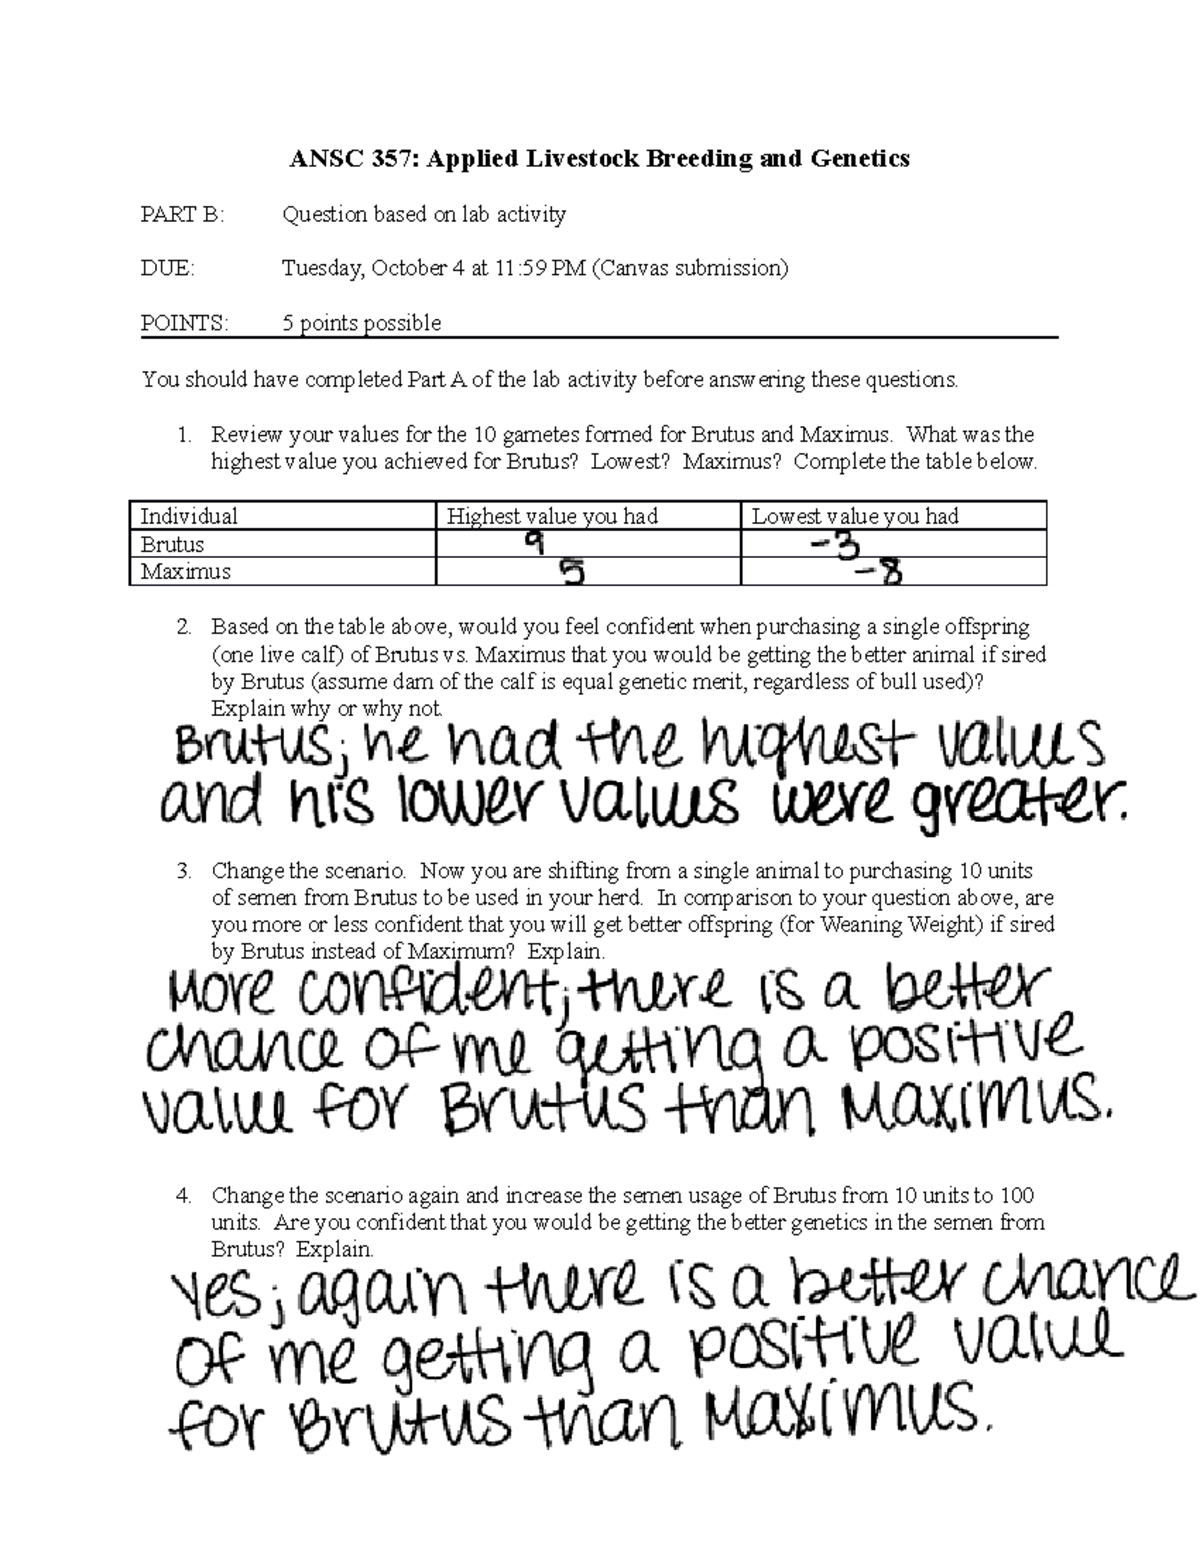 ANSC 357: Applied Livestock Breeding and Genetics
PART B: Question based on lab activity
DUE: Tuesday, October 4 at 11:59 PM (Canvas submission)
POINTS: 5 points possible
You should have completed Part A of the lab activity before answering these questions.
1. Review your values for the 10 gametes formed for Brutus and Maximus. What was the
highest value you achieved for Brutus? Lowest? Maximus? Complete the table below.
Individual Highest value you had Lowest value you had
Brutus 9 -3
Maximus 5 -8
2. Based on the table above, would you feel confident when purchasing a single offspring
(one live calf) of Brutus vs. Maximus that you would be getting the better animal if sired
by Brutus (assume dam of the calf is equal genetic merit, regardless of bull used)?
Explain why or why not.
Brutus; he had the highest values
and his lower values were greater.
3. Change the scenario. Now you are shifting from a single animal to purchasing 10 units
of semen from Brutus to be used in your herd. In comparison to your question above, are
you more or less confident that you will get better offspring (for Weaning Weight) if sired
by Brutus instead of Maximum? Explain.
More confident; there is a better
chance of me getting a positive
value for Brutus than Maximus.
4. Change the scenario again and increase the semen usage of Brutus from 10 units to 100
units. Are you confident that you would be getting the better genetics in the semen from
Brutus? Explain.
Yes; again there is a better chance
of me getting a positive value
for Brutus than Maximus.